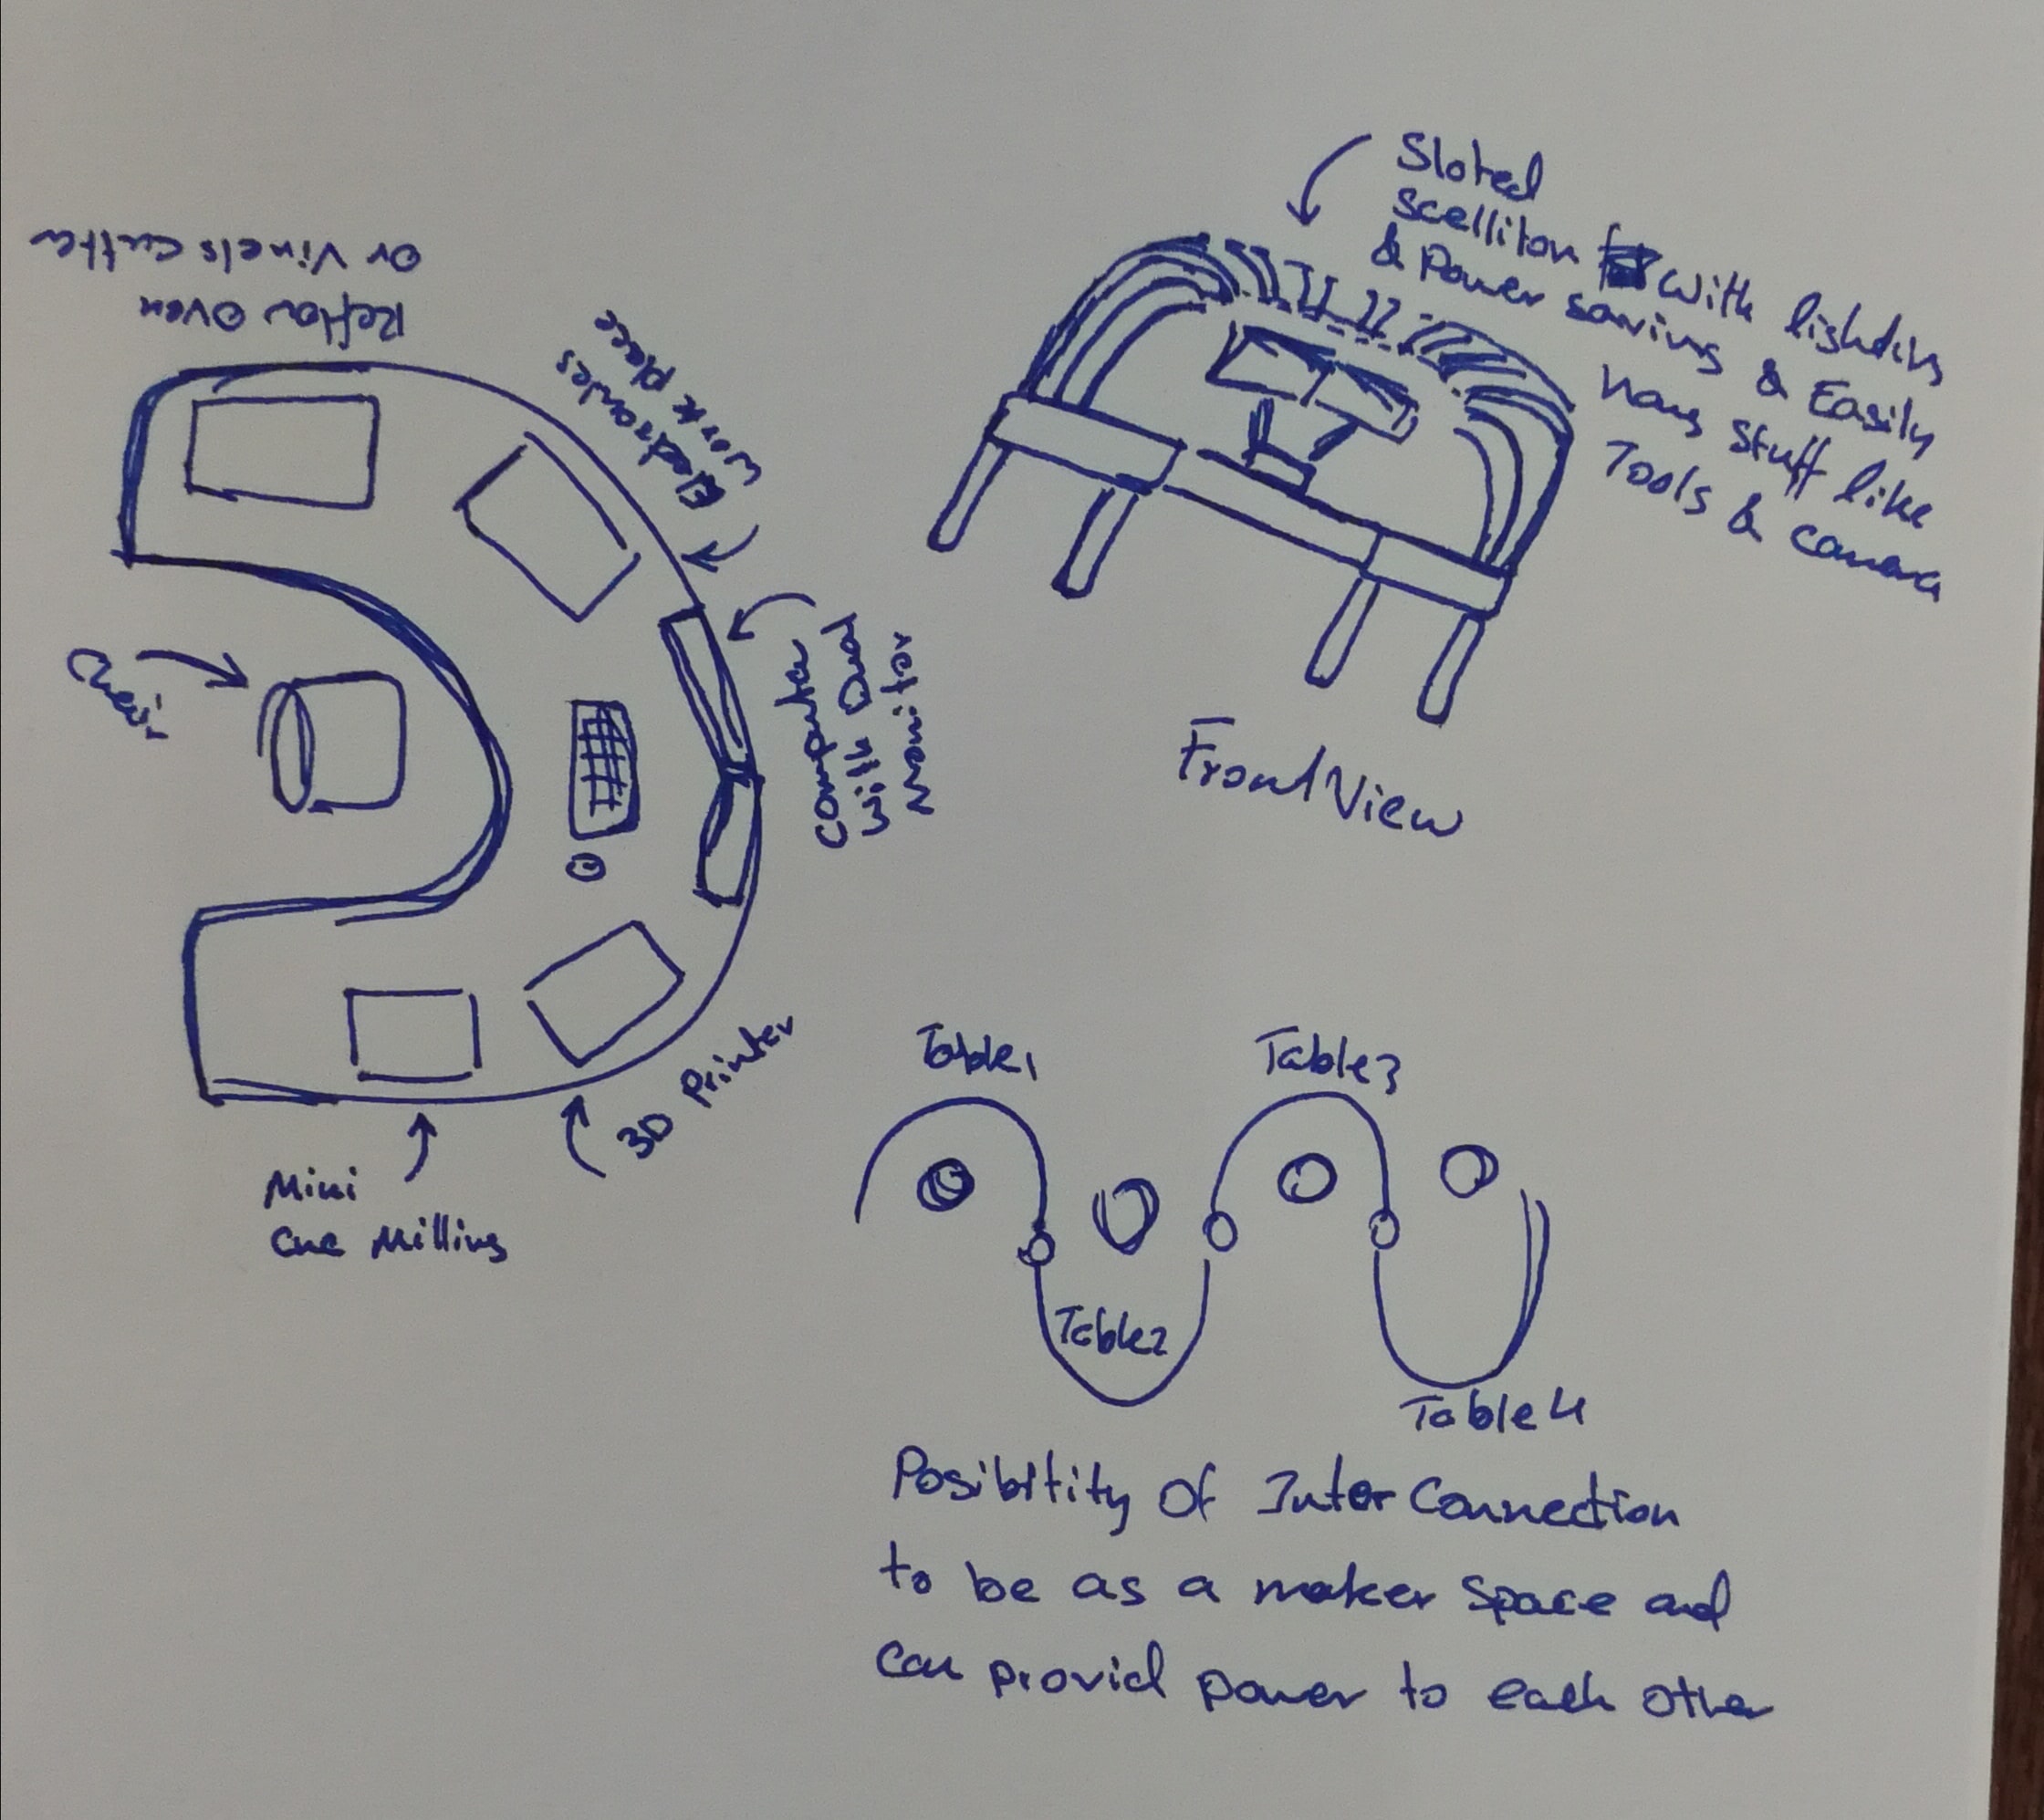 Sloted
scelliton With lighting
& Power saving & Easily
hang stuff like
Tools & camera
Reflow Oven
Or Vinels cutter
Electronics
work place
Computer
with Dual
Monitor
Chair
3D Printer
Mini
cnc Milling
Front View
Table1
Table3
Table2
Table4
Posibitity Of Inter Connection
to be as a maker space and
can provid power to each other